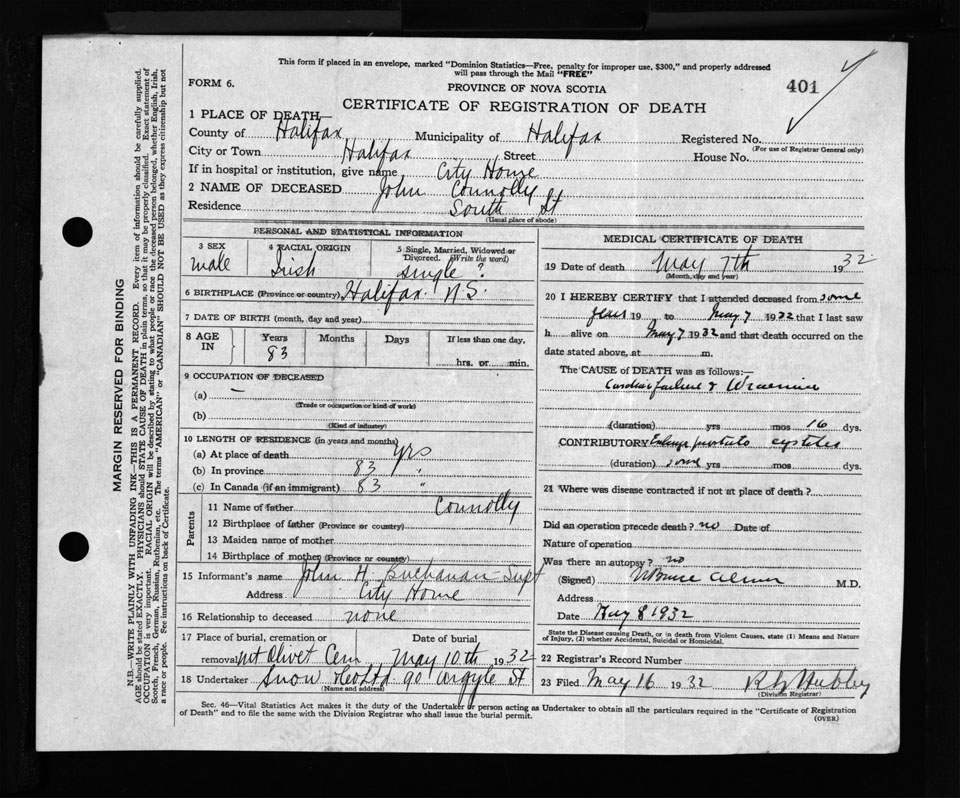 This form if placed in an envelope, marked "Dominion Statistics—Free, penalty for improper use, $300," and properly addressed
will pass through the Mail "FREE"
FORM 6.
PROVINCE OF NOVA SCOTIA
401
CERTIFICATE OF REGISTRATION OF DEATH
1 PLACE OF DEATH—
County of Halifax Municipality of Halifax Registered No.
(For use of Registrar General only)
City or Town Halifax Street House No.
If in hospital or institution, give name City Home
2 NAME OF DECEASED John Connolly
Residence South St
(Usual place of abode)
PERSONAL AND STATISTICAL INFORMATION
3 SEX 4 RACIAL ORIGIN 5 Single, Married, Widowed or
Divorced. (Write the word)
male Irish single ?
6 BIRTHPLACE (Province or country) Halifax N.S.
7 DATE OF BIRTH (month, day and year)
8 AGE IN Years Months Days If less than one day,
83 hrs. or min.
9 OCCUPATION OF DECEASED
(a) —
(Trade or occupation or kind of work)
(b)
(Kind of industry)
10 LENGTH OF RESIDENCE (in years and months)
(a) At place of death yrs
(b) In province 83 "
(c) In Canada (if an immigrant) 83 "
Parents
11 Name of father Connolly
12 Birthplace of father (Province or country)
13 Maiden name of mother
14 Birthplace of mother (Province or country)
15 Informant's name John H. Buchanan Supt
Address City Home
16 Relationship to deceased none
17 Place of burial, cremation or Date of burial
removal Mt Olivet Cem May 10th 1932
18 Undertaker Snow & Co Ltd 90 Argyle St
(Name and address)
MEDICAL CERTIFICATE OF DEATH
19 Date of death May 7th 1932
(Month, day and year)
20 I HEREBY CERTIFY that I attended deceased from some
years 19 to May 7 1932 that I last saw
h alive on May 7 1932 and that death occurred on the
date stated above, at m.
The CAUSE of DEATH was as follows:—
Cardiac failure & Uraemia
(duration) yrs mos 16 dys.
CONTRIBUTORY Enlarge prostate cystitis
(duration) some yrs mos dys.
21 Where was disease contracted if not at place of death?
Did an operation precede death? no Date of
Nature of operation
Was there an autopsy? no
(Signed) M.D.
Address
Date May 8 1932
State the Disease causing Death, or in death from Violent Causes, state (1) Means and Nature
of Injury, (2) whether Accidental, Suicidal or Homicidal.
22 Registrar's Record Number
23 Filed May 16 1932
(Division Registrar)
Sec. 46—Vital Statistics Act makes it the duty of the Undertaker or person acting as Undertaker to obtain all the particulars required in the "Certificate of Registration
of Death" and to file the same with the Division Registrar who shall issue the burial permit.
(OVER)
MARGIN RESERVED FOR BINDING
N.B.—WRITE PLAINLY WITH UNFADING INK—THIS IS A PERMANENT RECORD. Every item of information should be carefully supplied.
AGE should be stated EXACTLY. PHYSICIANS should STATE CAUSE OF DEATH in plain terms, so that it may be properly classified. Exact statement of
OCCUPATION is very important. RACIAL ORIGIN will be described by stating to what people or race the deceased person belonged, whether English, Irish,
Scotch, French, German, Russian, Ruthenian, etc. The terms "AMERICAN" or "CANADIAN" SHOULD NOT BE USED as they express citizenship but not
a race or people. See instructions on back of Certificate.